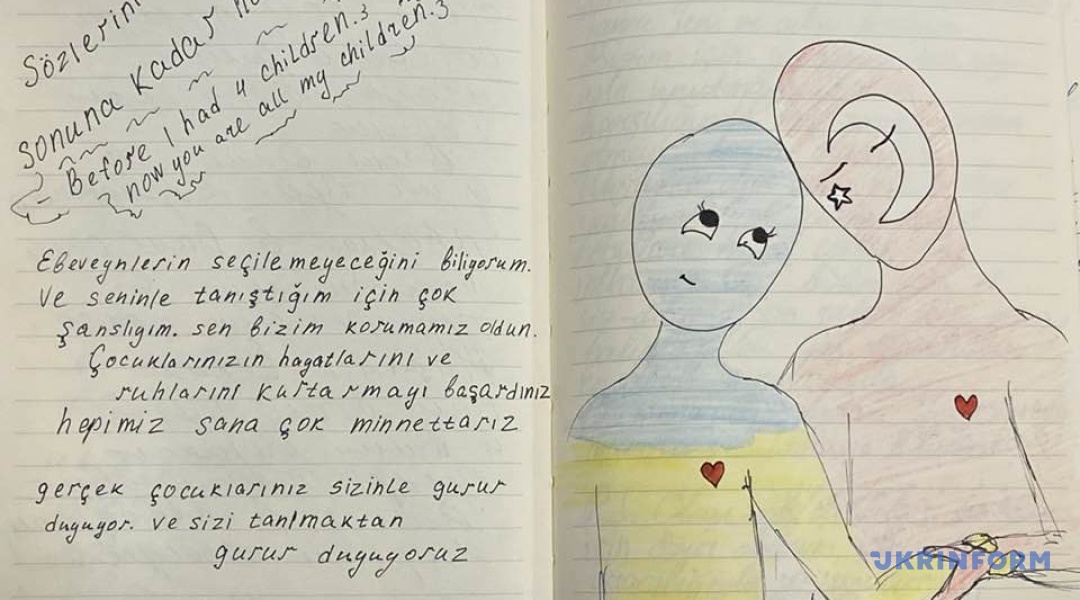 Sözlerini
sonuna kadar
Before I had 4 children.
now you are all my children.
Ebeveynlerin seçilemeyeceğini biliyorum.
Ve seninle tanıştığım için çok
şanslıyım. sen bizim korumamız oldun.
Çocuklarınızın hayatlarını ve
ruhlarını kurtarmayı başardınız
hepimiz sana çok minnettarız
gerçek çocuklarınız sizinle gurur
duyuyor. ve sizi tanımaktan
gurur duyuyoruz
UKRINFORM